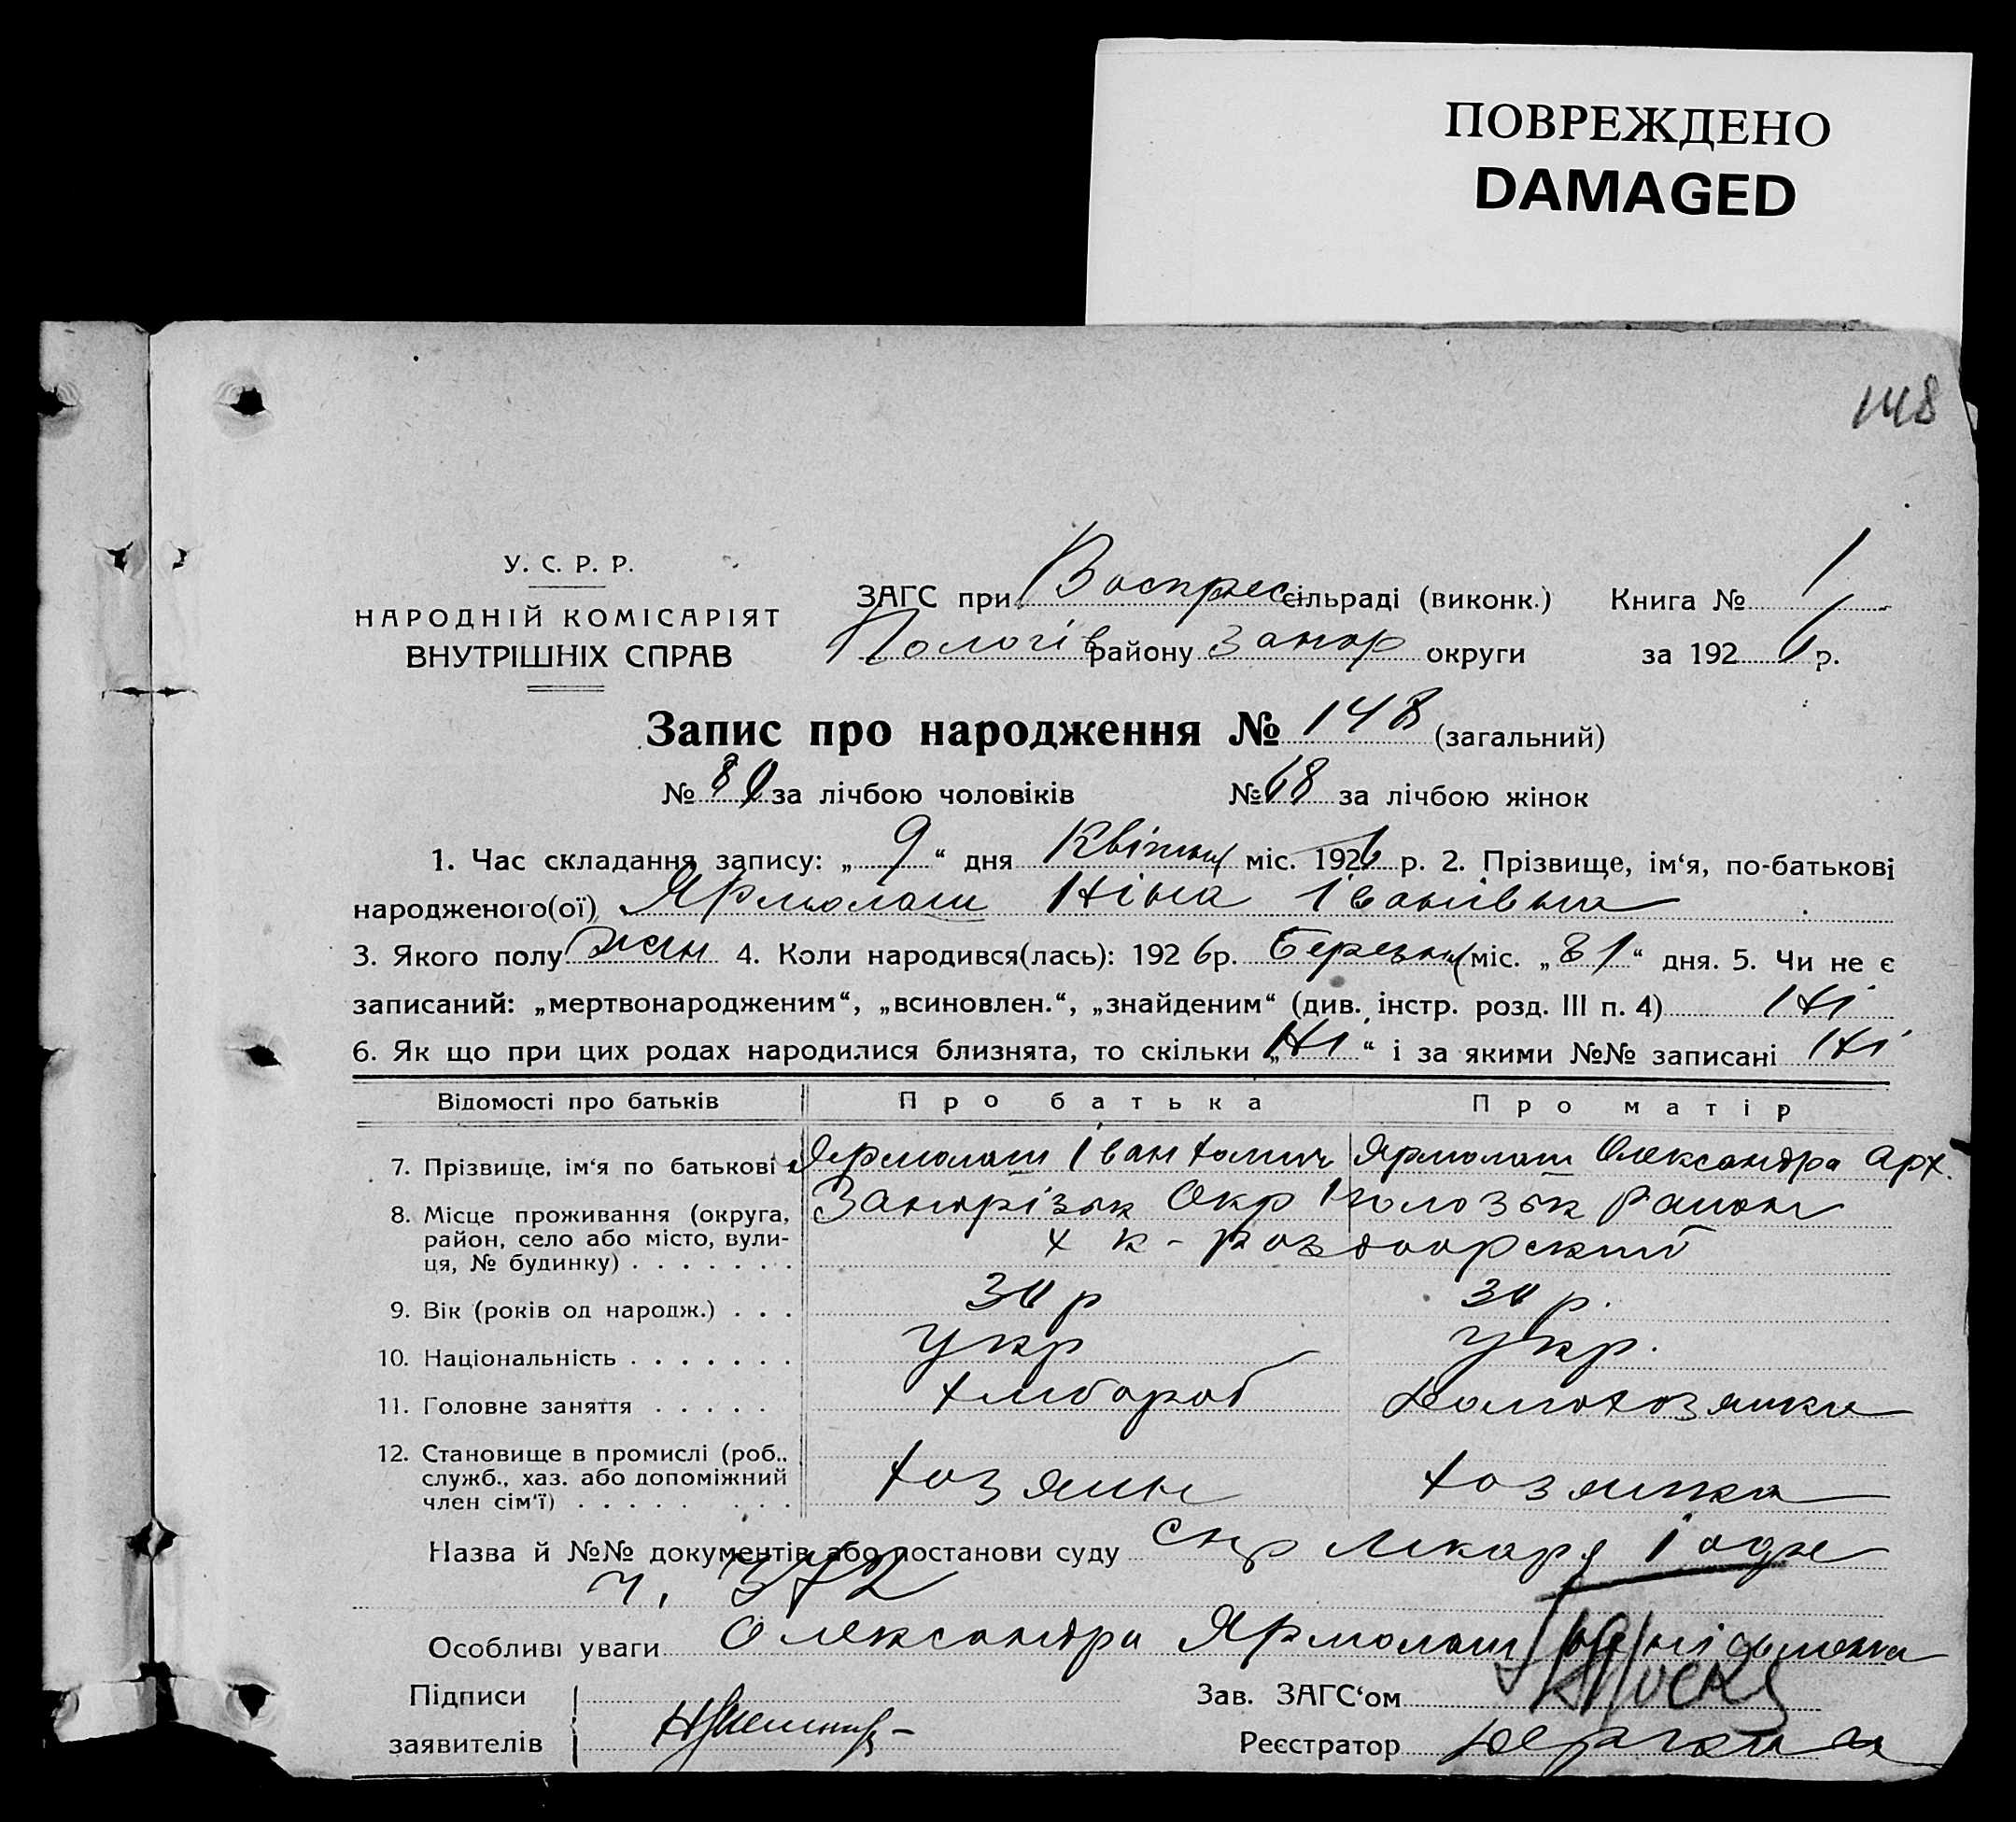 ПОВРЕЖДЕНО
DAMAGED
148
У. С. Р. Р.
НАРОДНІЙ КОМІСАРІЯТ
ВНУТРІШНІХ СПРАВ
ЗАГС при Воскрес сільраді (виконк.) Книга № 1
Пологів району Запор округи за 1926 р.
Запис про народження № 148 (загальний)
№ 80 за лічбою чоловіків № 68 за лічбою жінок
1. Час складання запису: „ 9 “ дня Квітня міс. 1926 р. 2. Прізвище, ім‘я, по-батькові
народженого(ої) Ярмолаш Ніна Іванівна
3. Якого полу жін 4. Коли народився(лась): 1926р. Березня міс. „ 31 “ дня. 5. Чи не є
записаний: „мертвонародженим“, „всиновлен.“, „знайденим“ (див. інстр. розд. III п. 4) Ні
6. Як що при цих родах народилися близнята, то скільки „ Ні “ і за якими №№ записані Ні
Відомості про батьків Про батька Про матір
7. Прізвище, ім‘я по батькові Ярмолаш Іван Ярмолаш Олександра Арх.
8. Місце проживання (округа, Запорізьк Окр Район
район, село або місто, вули-
ця, № будинку)
9. Вік (років од народж.) 30 р 30 р.
10. Національність Укр Укр.
11. Головне заняття Хлібороб Домохозяйка
12. Становище в промислі (роб.,
служб., хаз. або допоміжний хозяин хозяйка
член сім‘ї)
Назва й №№ документів або постанови суду лікаря
ч. 372
Особливі уваги Олександра Ярмолаш
Підписи Зав. ЗАГС‘ом
заявителів Реєстратор